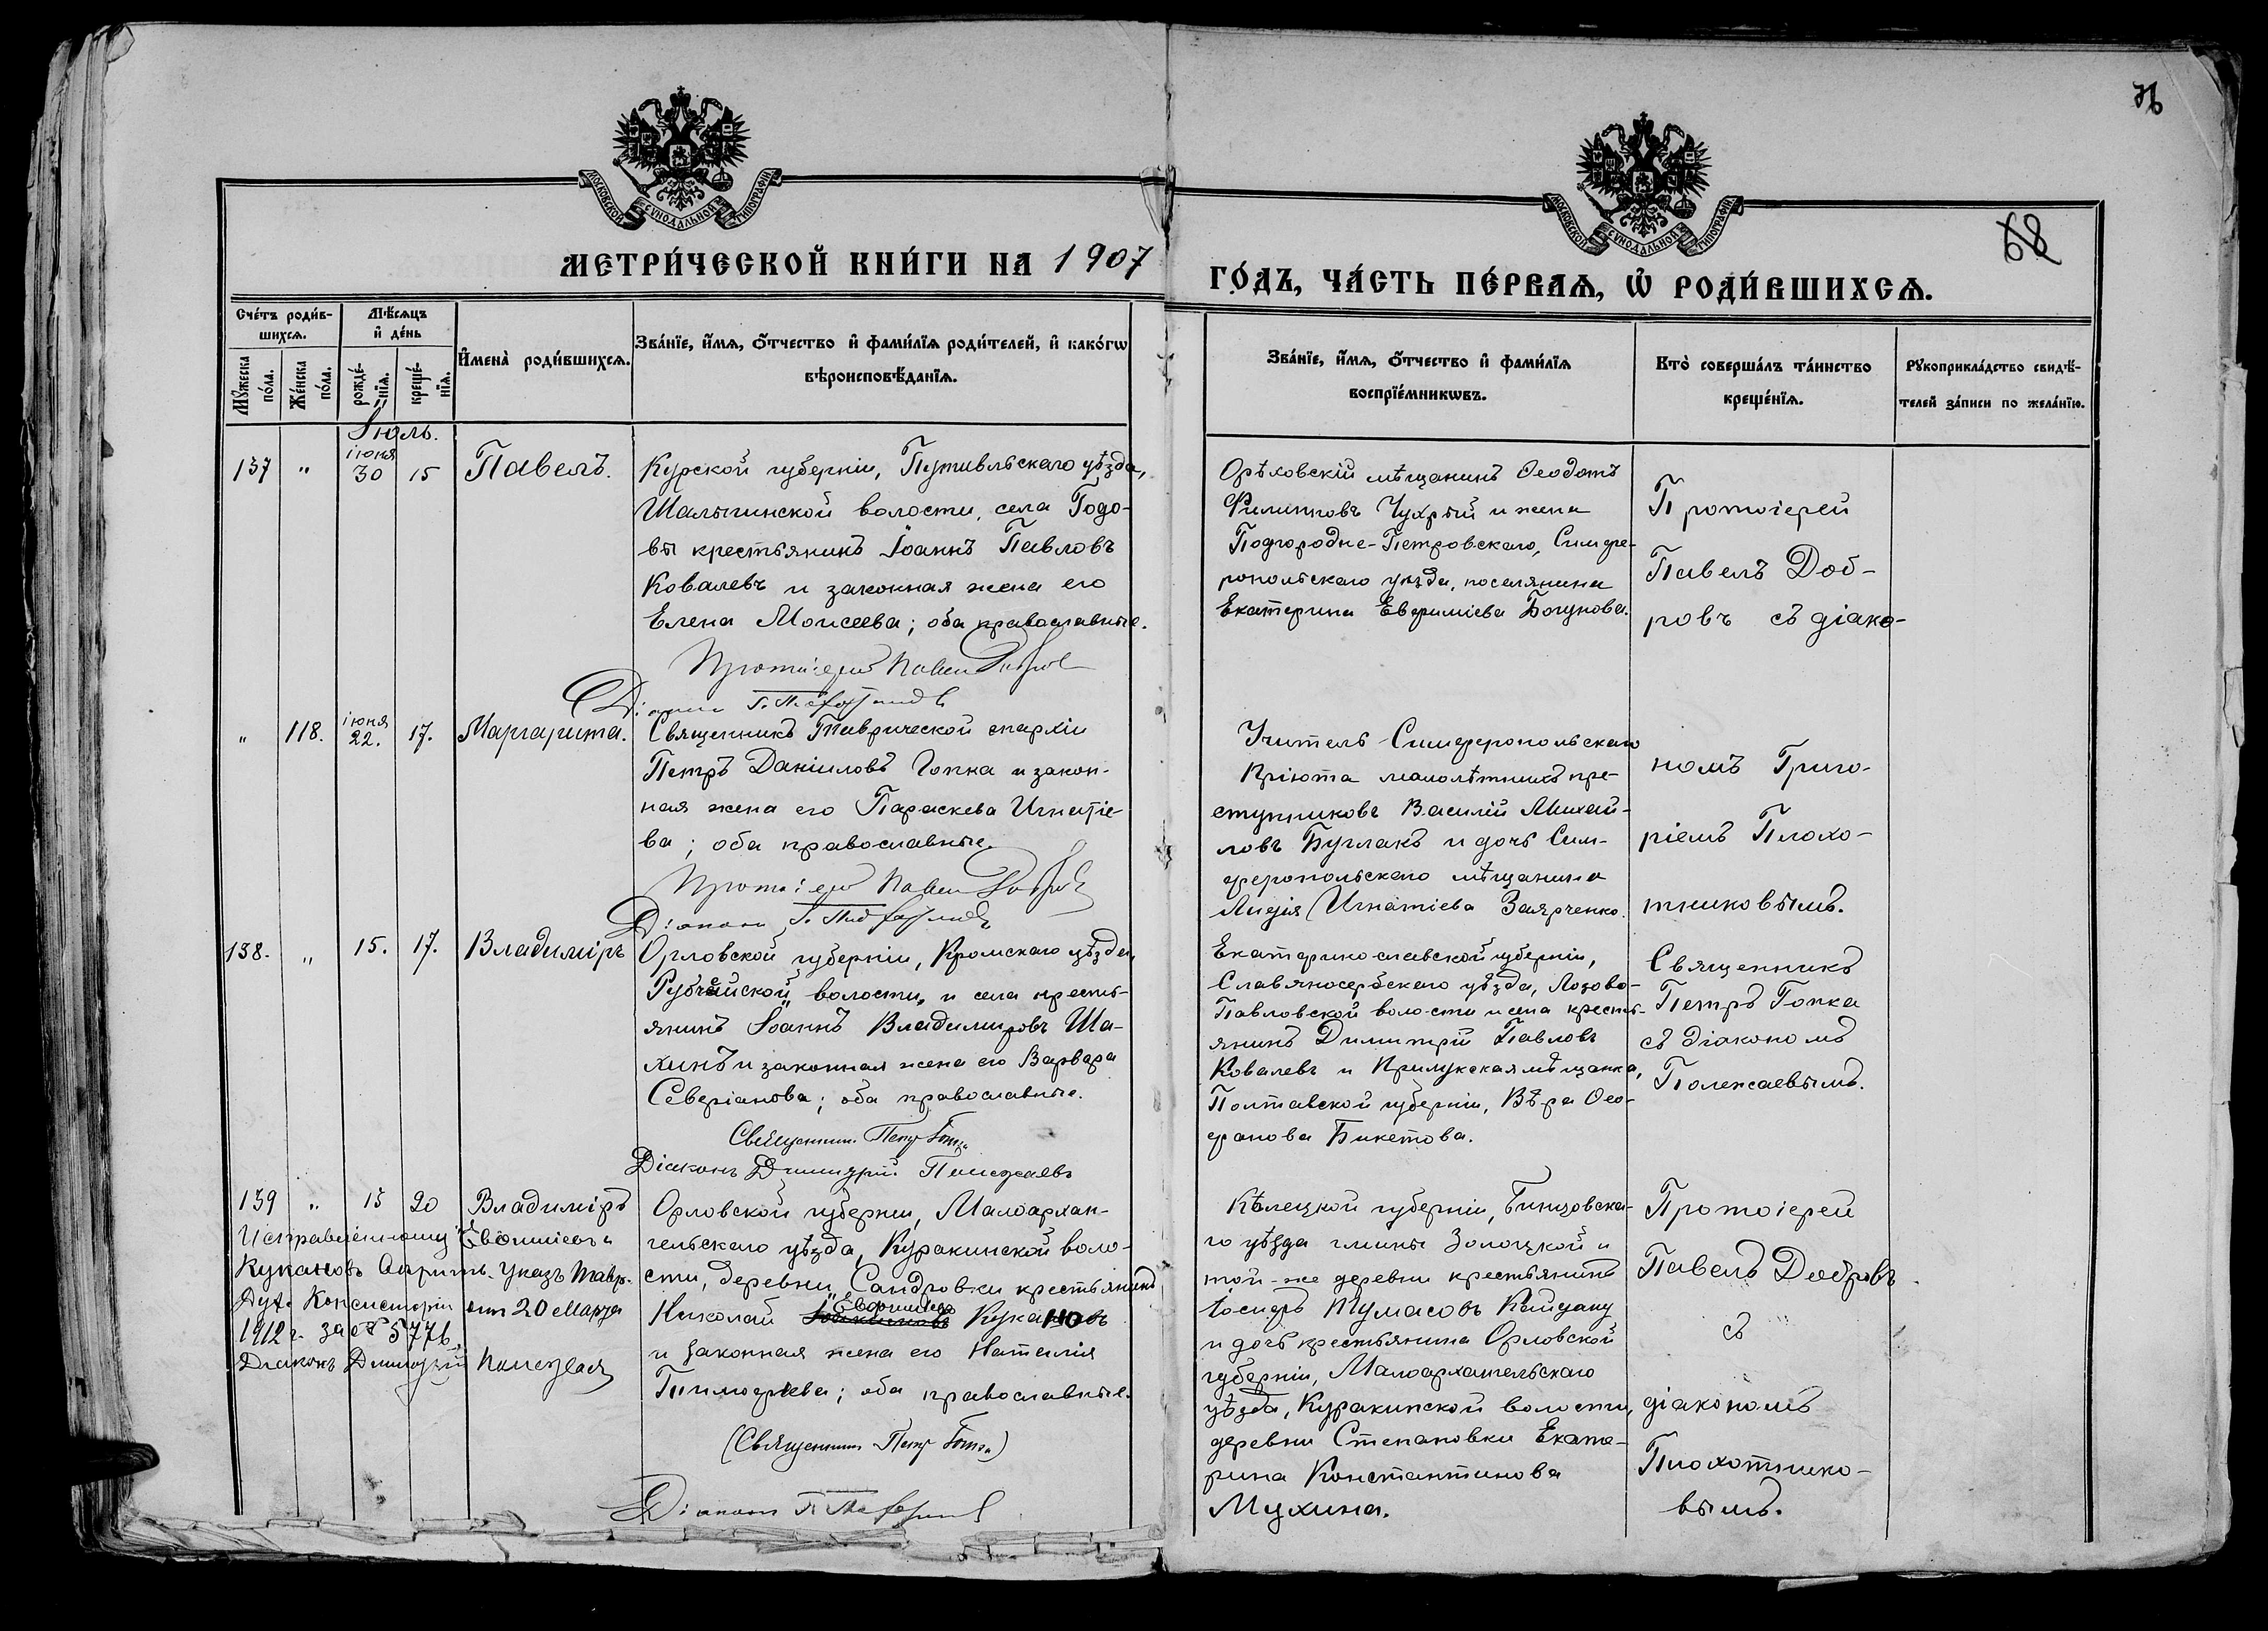 76
68
МОСКОВСКОЙ СѴНОДАЛЬНОЙ ТИПОГРАФІИ
МОСКОВСКОЙ СѴНОДАЛЬНОЙ ТИПОГРАФІИ
МЕТРИ́ЧЕСКОЙ КНИ́ГИ НА 1907
ГО́ДЪ, ЧА́СТЬ ПЕ́РВАѦ, Ѡ҆ РОДИ́ВШИХСѦ.
Сче́тъ роди́в-
шихсѧ.
Мꙋжеска по́ла.
Же́нска по́ла.
Мѣ́сѧцъ
и҆ де́нь
рожде́-
нїѧ.
креще́-
нїѧ.
И҆мена̀ роди́вшихсѧ.
Зва́нїе, и҆́мѧ, ѻ҆́тчество и҆ фами́лїѧ роди́телей, и҆ како́гѡ
вѣроисповѣ́данїѧ.
Зва́нїе, и҆́мѧ, ѻ҆́тчество и҆ фами́лїѧ
воспрїе́мникѡвъ.
Кто̀ соверша́лъ та́инство
креще́нїѧ.
Рꙋкоприкла́дство свидѣ́-
телей за́писи по жела́нїю.
Іюль.
137 " іюня 30 15 Павелъ.
Курской губерніи, Путивльскаго уѣзда,
Шалыгинской волости, села Годо-
вы крестьянинъ Іоаннъ Павловъ
Ковалевъ и законная жена его
Елена Моисеева; оба православные.
Протоіерей Павелъ Добровъ
Діаконъ Г.
Орѣховскій мѣщанинъ Ѳеодотъ
Филипповъ Чухрый и жена
Подгородне-Петровскаго, Симфе-
ропольскаго уѣзда, поселянина
Екатерина Евфиміева Богунова.
Протоіерей
Павелъ Доб-
ровъ съ діако-
" 118. іюня 22. 17. Маргарита.
Священникъ Таврической епархіи
Петръ Даніиловъ Гопка и закон-
ная жена его Параскева Игнатіе-
ва; оба православные.
Протоіерей Павелъ Добровъ
Діаконъ Г.
Учитель Симферопольскаго
Пріюта малолѣтнихъ пре-
ступниковъ Василій Михай-
ловъ Буглакъ и дочь Сим-
феропольскаго мѣщанина
Лидія Игнатіева Заярченко.
номъ Григо-
ріемъ Плохо-
тниковымъ.
138. " 15. 17. Владиміръ
Орловской губерніи, Кромскаго уѣзда,
волости, и села кресть-
янинъ Іоаннъ Владимировъ Ша-
хинъ и законная жена его Варвара
Северіанова; оба православные.
Священникъ Петръ Гопка
Діаконъ Димитрій Полежаевъ
Екатеринославской губерніи,
Славяносербскаго уѣзда, Лозово-
Павловской волости и села кресть-
янинъ Димитрій Павловъ
Ковалевъ и Прилукская мѣщанка,
Полтавской губерніи, Вѣра Ѳео-
фанова Бикетова.
Священникъ
Петръ Гопка
съ діакономъ
Полежаевымъ.
139 " 15 20 Владиміръ
Исправленному "Евфиміевъ"
Кукановъ вѣрить. Указъ Тавр.
Дух. Консисторіи отъ 20 Марта
1912 г. за № 5776.
Діаконъ Димитрій Полежаевъ
Орловской губерніи, Малоархан-
гельскаго уѣзда, Куракинской воло-
сти, деревни Сандровки крестьянинъ
Евфиміевъ
Николай Кукановъ
и законная жена его Наталія
Тимофеева; оба православные.
(Священникъ Петръ Гопка)
Діаконъ Г.
Кѣлецкой губерніи, Пинчовска-
го уѣзда гмины Золоцкой и
той-же деревни крестьянинъ
Іосифъ Тумасовъ
и дочь крестьянина Орловской
губерніи, Малоархангельскаго
уѣзда, Куракинской волости,
деревни Степановки Екате-
рина Константинова
Мухина.
Протоіерей
Павелъ Добровъ
съ
діакономъ
Плохотнико-
вымъ.